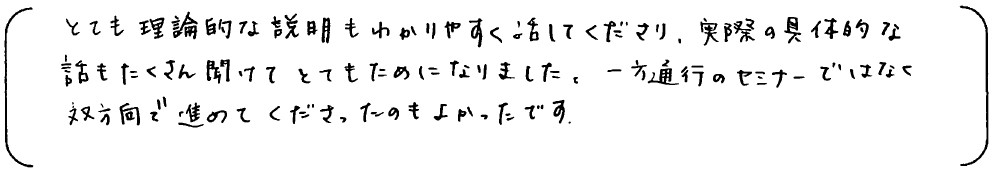 とても理論的な説明もわかりやすく話してくださり、実際の具体的な
話もたくさん聞けてとてもためになりました。一方通行のセミナーではなく
双方向で進めてくださったのもよかったです.